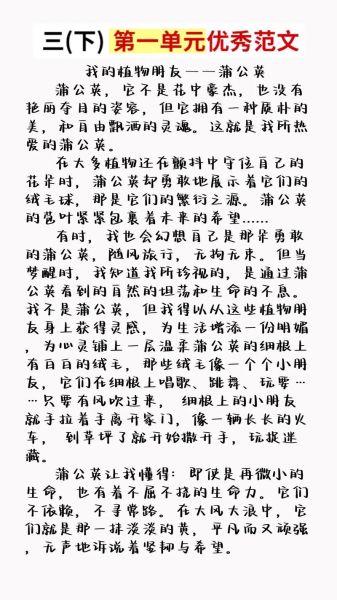 三(下) 第一单元优秀范文
我的植物朋友——蒲公英
蒲公英，它不是花中豪杰，也没有
艳丽夺目的姿容，但它拥有一种质朴的
美，和自由飘洒的灵魂。这就是我所热
爱的蒲公英。
在大多植物还在颤抖中守位自己的
花朵时，蒲公英却勇敢地展示着它们的
绒毛球，那是它们的繁衍之源。蒲公英
的苞叶紧紧包裹着未来的希望……
有时，我也会幻想自己是那朵勇敢
的蒲公英，随风旅行，无拘无束。但当
梦醒时，我知道我所珍视的，是通过蒲
公英看到的自然的坦荡和生命的不息。
我不是蒲公英，但我得以从这些植物朋
友身上获得灵感，为生活增添一份明媚
，为心灵铺上一层温柔蒲公英的细根上
有白白的绒毛，那些绒毛像一个个小朋
友，它们在细根上唱歌、跳舞、玩耍…
…只要有风吹过来， 细根上的小朋友
就手拉着手离开家门，像一辆长长的火
车， 到草坪了就开始撒开手，玩捉迷
藏。
蒲公英让我懂得：即使是再微小的
生命，也有着不屈不挠的生命力。它们
不依赖，不寻常路。在大风大浪中，它
们就是那一抹淡淡的黄，平凡而又顽强
，无声地诉说着坚韧与希望。